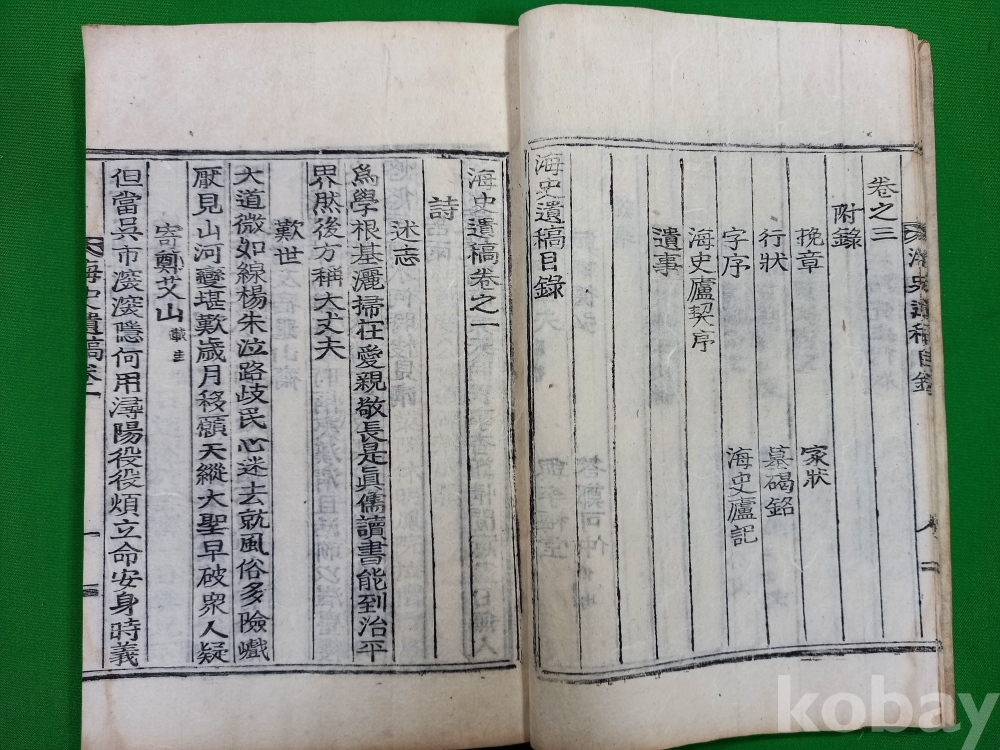 卷之三
附錄
挽章
家狀
行狀
墓碣銘
字序
海史廬記
海史廬契序
遺事
海史遺稿目錄
海史遺稿卷之一
詩
述志
爲學根基灑掃在愛親敬長是眞儒讀書能到治平
界然後方稱大丈夫
歎世
大道微如線楊朱泣路歧民心迷去就風俗多險巇
厭見山河變堪歎歲月移願天縱大聖早破衆人疑
寄鄭艾山 載圭
但當吳市滚滚隱何用潯陽役役煩立命安身時義
海史遺稿卷一
kobay